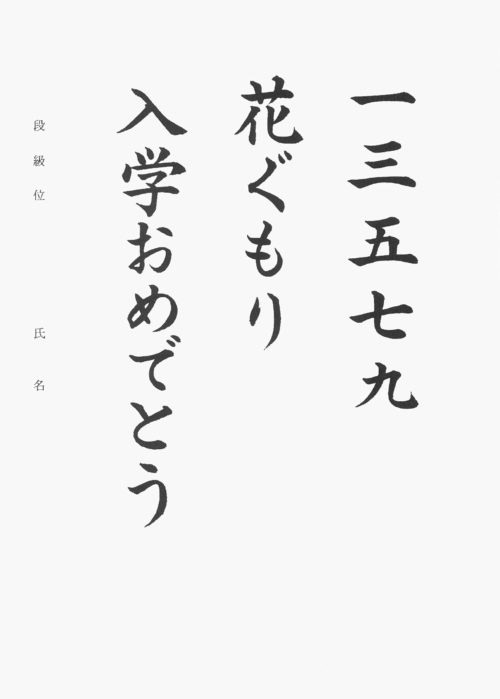 一三五七九
花ぐもり
入学おめでとう
段級位 氏名